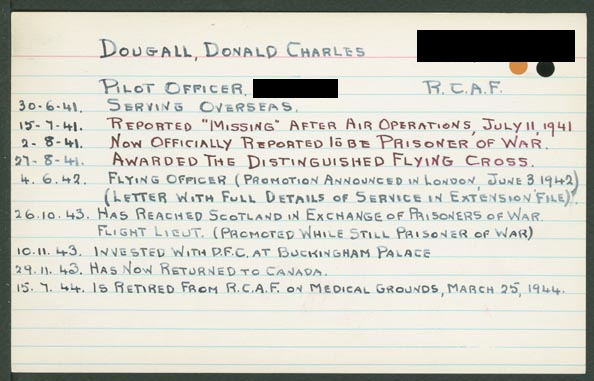 Dougall, Donald Charles
Pilot Officer. R.C.A.F.
30-6-41. Serving Overseas.
15-7-41. Reported "Missing" After Air Operations, July 11, 1941
2-8-41. Now Officially Reported To Be Prisoner of War.
27-8-41. Awarded The Distinguished Flying Cross.
4.6.42. Flying Officer (Promotion Announced in London, June 3 1942)
(Letter With Full Details of Service in Extension File).
26.10.43. Has Reached Scotland in Exchange of Prisoners of War.
Flight Lieut. (Promoted While Still Prisoner of War)
10.11.43. Invested With D.F.C. at Buckingham Palace
29.11.43. Has Now Returned to Canada.
15.7.44. Is Retired From R.C.A.F. on Medical Grounds, March 25, 1944.